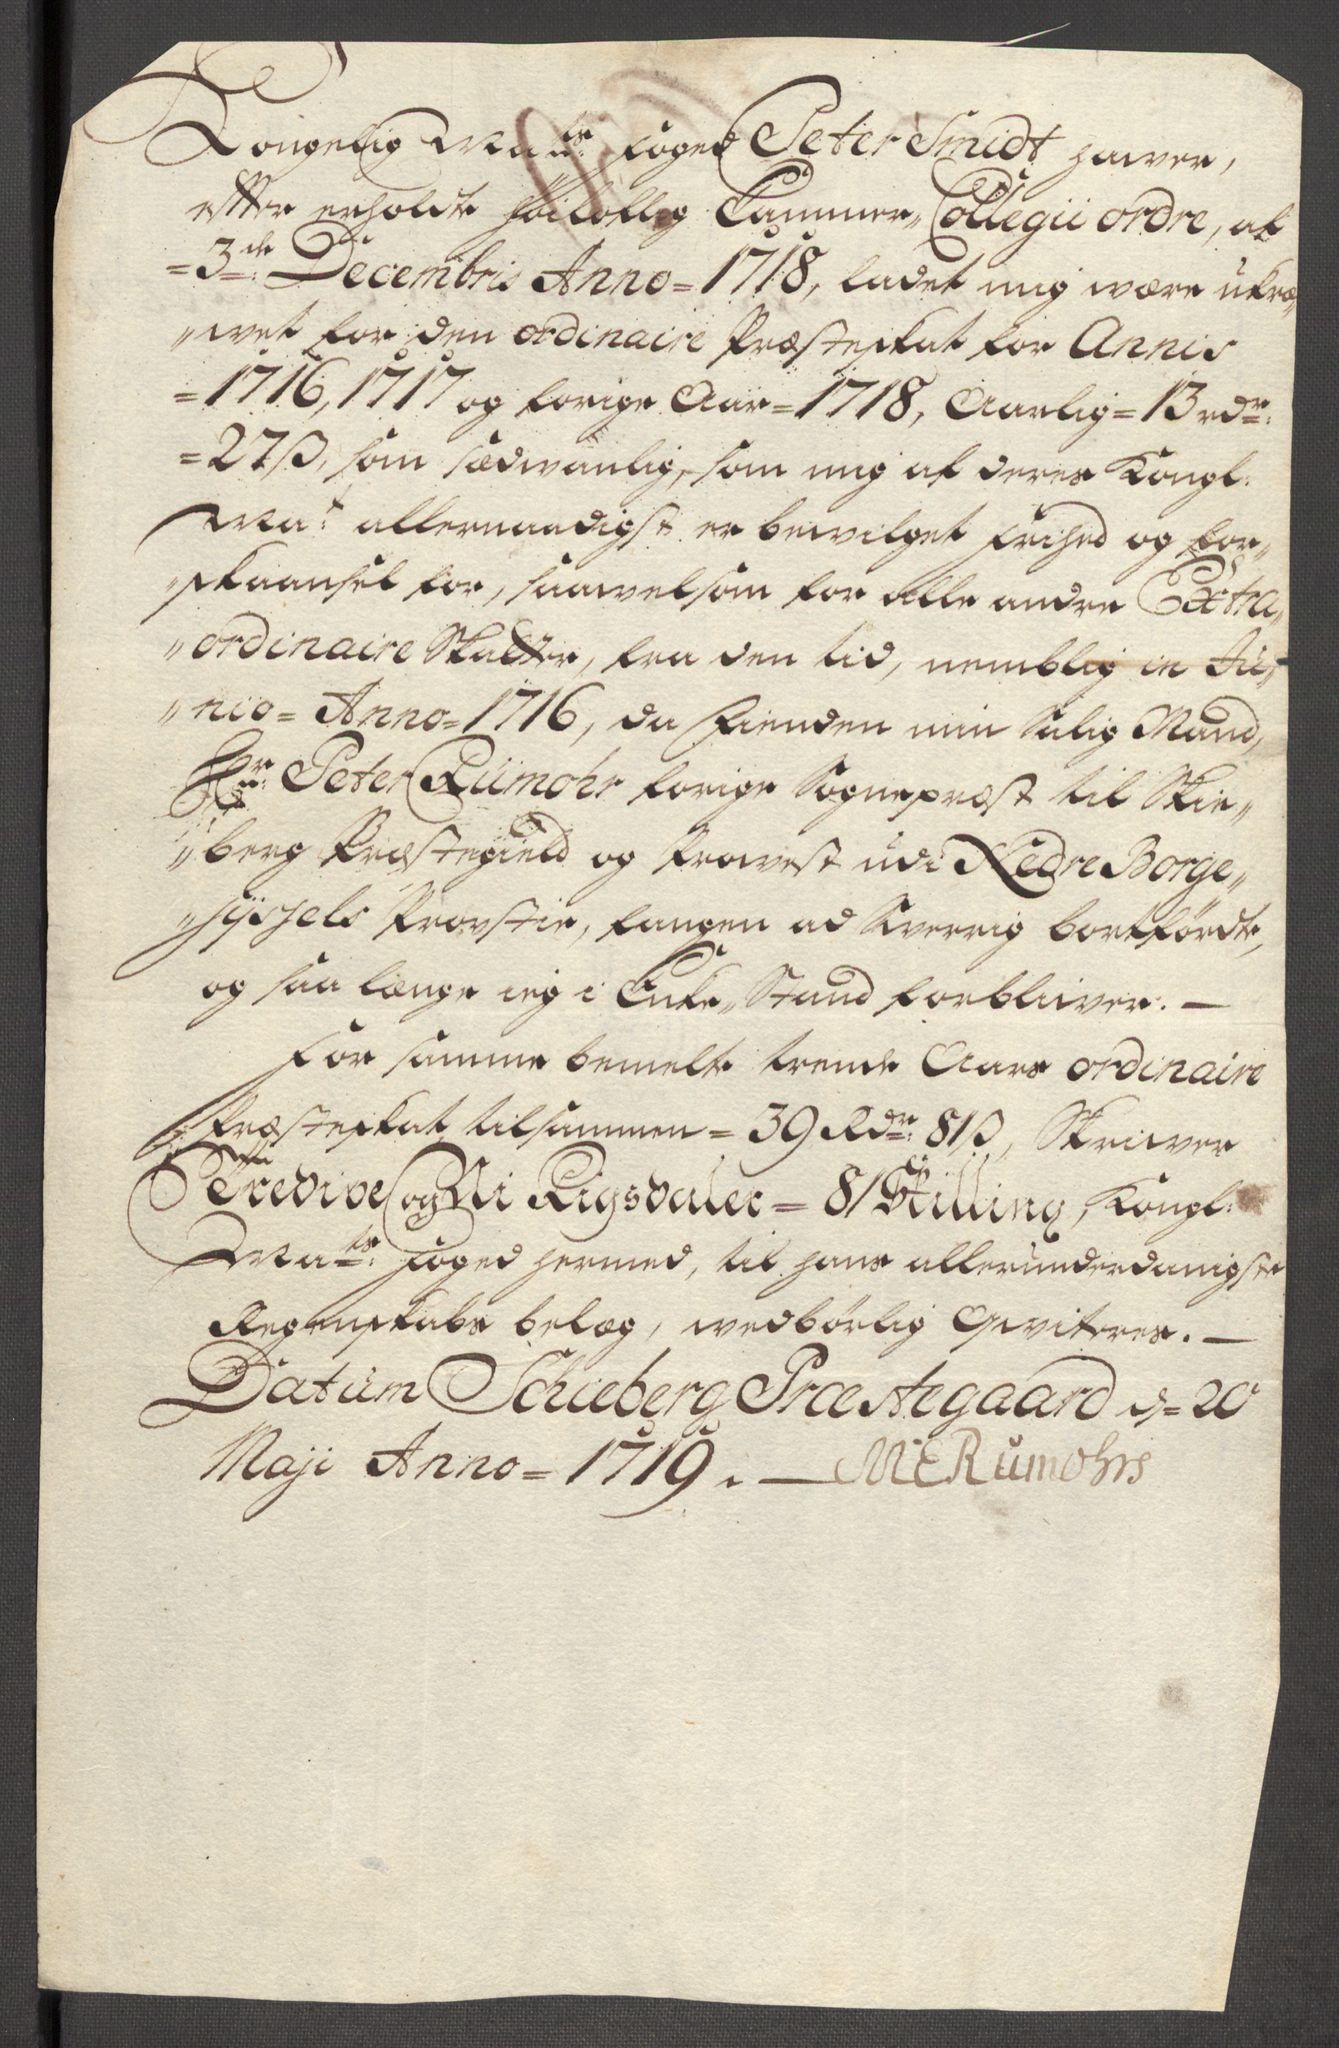 Kongelig Ma:ts foged Peter Smidt hawer,
effter erholdte Høiloflig Cammer„ Collegii ordre, af
=3de: Decembris Anno=1718, ladet mig være ukræ„
„wet for den ordinaire Præsteskat for Annis
=1716, 1717 og forige Aar=1718, Aarlig=13 rdr:
=27ß, som sædvanlig, som mig af deres Kongl:
Ma:t allernaadigst er bewilget frihed og for„
„skaansel for, saavelsom for alle andre Extra„
„ordinaire Skatter, fra den tid, nemblig in Ju„
„nio= Anno=1716, da Fienden min Salig Mand,
Hr: Peter Rumohr forige Sognepræst til Skie„
„berg Præstegield og Prowst udi Nedre Borge„
„syssels Provstie, fangen ad Sverrig bortførdte,
og saa længe ieg i Enke„ Stand forbliiver. —
For samme bemelte trende Aars ordinaire
Præsteskat tilsammen= 39 Rdr: 81ß, Skriiver
Tredive og Ni Rigsdaler = 81 Skilling, Kongl:
Ma:ts foged hermed, til hans allerunderdanigste
Regenskabs belæg, wedbørlig Qviteres. —
Datum Schieberg Præstegaard d= 20
Maji Anno=1719. — MERumohrs